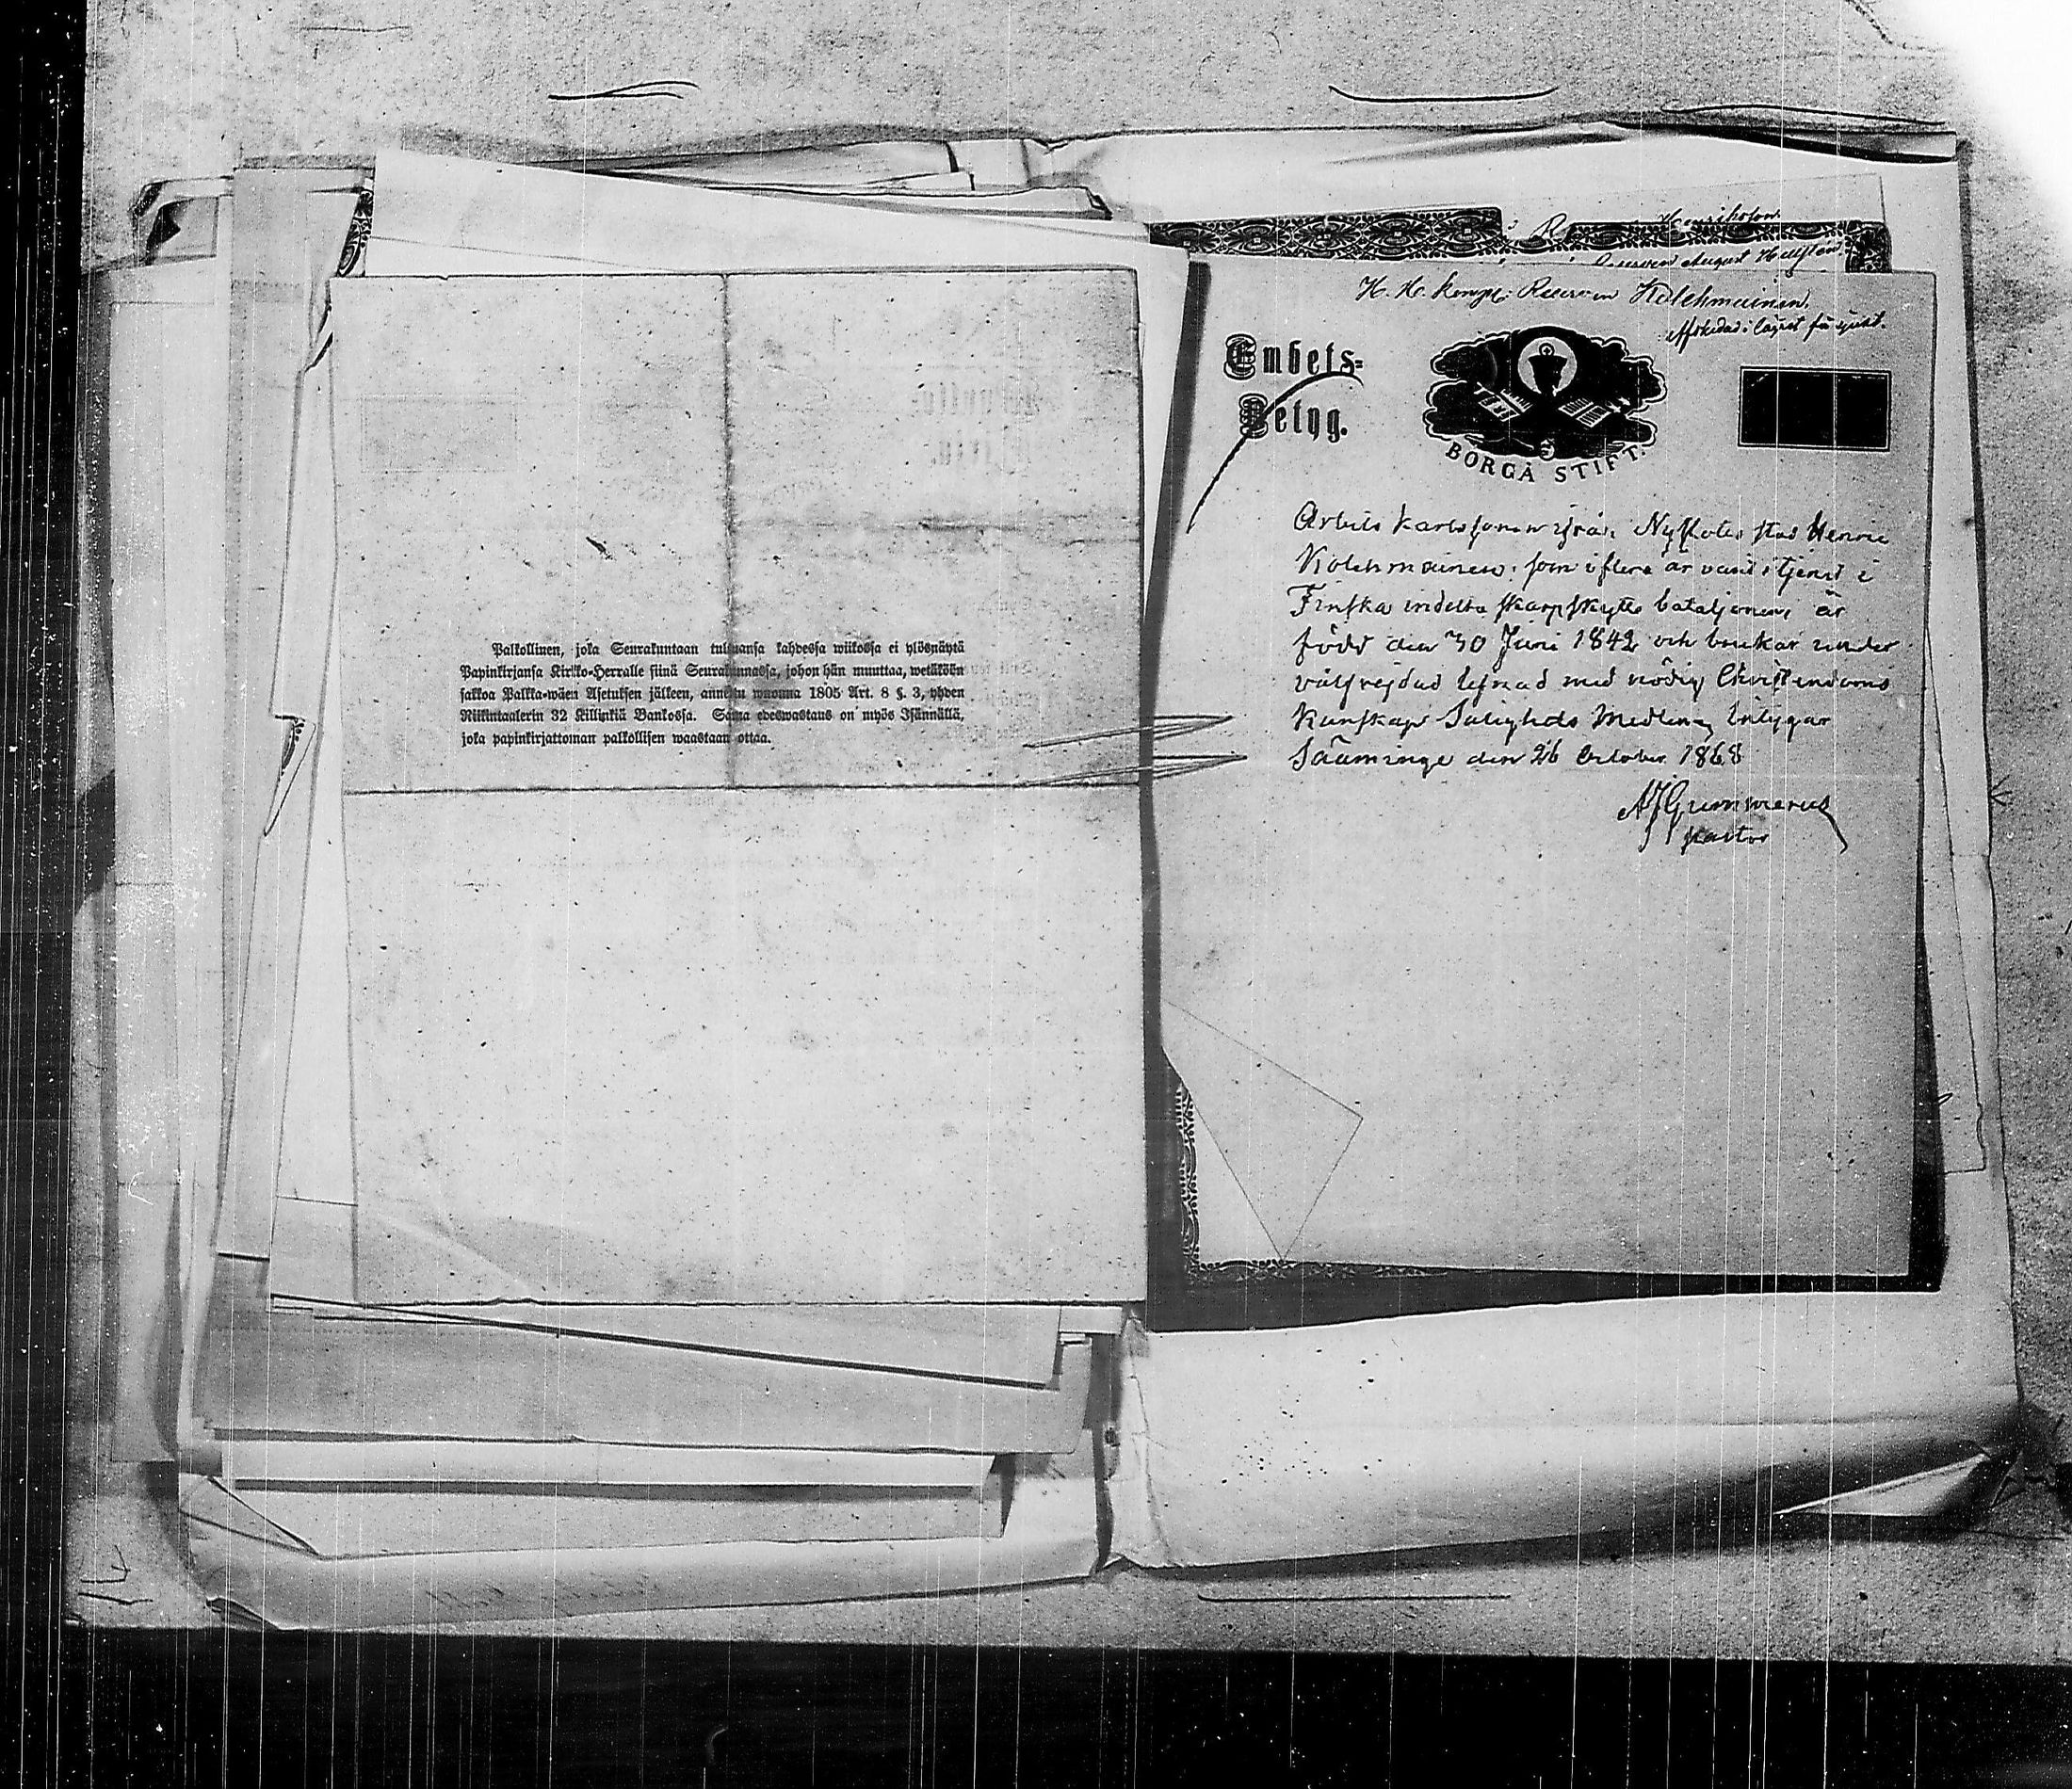 Palkollinen, joka Seurakuntaan tultuansa kahdessa wiikossa ei ylösnäytä
Papinkirjansa Kirkko-Herralle siinä Seurakunnassa, johon hän muuttaa, wetäköön
sakkoa Palkka-wäen Asetuksen jälkeen, annettu wuonna 1805 Art. 8 §. 3, yhden
Riikintaalerin 32 Killinkiä Bankossa. Sama edeswastaus on myös Isännällä,
joka papinkirjattoman palkollisen waastaan ottaa.
August
H. H. Reserven Kolehmainen.
Embets-
Betyg.
BORGÅ STIFT.
Arbets karlssonen ifrån Nyslotts stad Henric
Kolehmainen, som i flera år varit i tjenst i
Finska indelta skarpskytte bataljonen, är
född den 30 Juni 1842 och brukar under
välfrejdad lefnad med nödig Christendoms
kunskap Salighets Medlen; intygar
Sääminge den 26 October 1868
AJGummerus
pastor